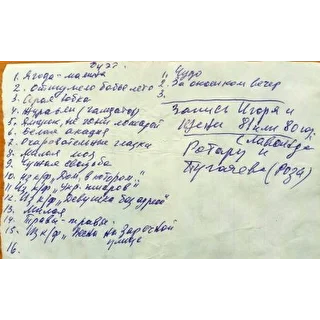 Дуэт
1. Ягода-малина
2. Отшумело бабье лето
3. Серая юбка
4. Журавли (Чампатор)
5. Ямщик, не гони лошадей
6. Белая акация
7. Очаровательные глазки
8. Милая моя
9. Чужая свадьба
10. Из к/ф „Дом, в котором.."
11. Из к/ф „Укр. шляров"
12. Из к/ф „Девушка без адреса"
13. Милая
14. Травы-травы
15. Из к/ф „Весна на Заречной
улице
16.
1. Чудо
2. За окошком вечер
3.
Запись Игоря и
81 или 80 год.
(Лаванда
Ротару и
Пугачева (Роза)